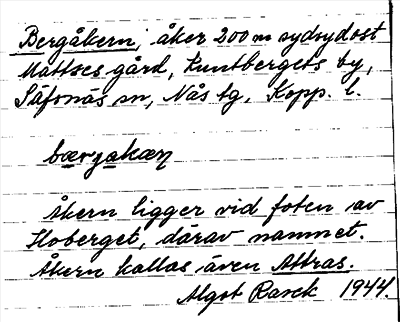 Bergåkern, åker 200 m sydsydost
Mattses gård, Kuntbergets by,
Säfsnäs sn, Nås tg, Kopp. l.
bærjakæɳ
Åkern ligger vid foten av
Hoberget, därav namnet.
Åkern kallas även Attras.
Algot Rasck 1944.